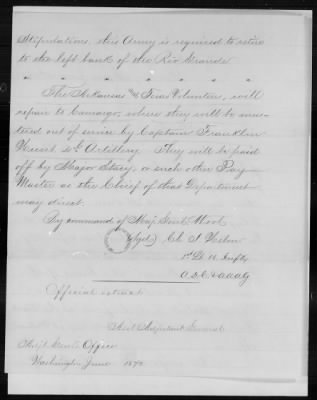 Stipulations, this Army is required to retire
to the left bank of the Rio Grande
The Arkansas and Texas Volunteers, will
repair to Camargo, where they will be mus-
tered out of service by Captain Franklin
Artillery They will be paid
off by Major or such other Pay-
Master as the Chief of that Department
may direct.
By command of Maj. Genl. Wool
(Sgd)
1st Lt
A.D.C. & A.A.A.G
Official extract
Asst Adjutant General
Adjt Genl's Office
Washington June 187